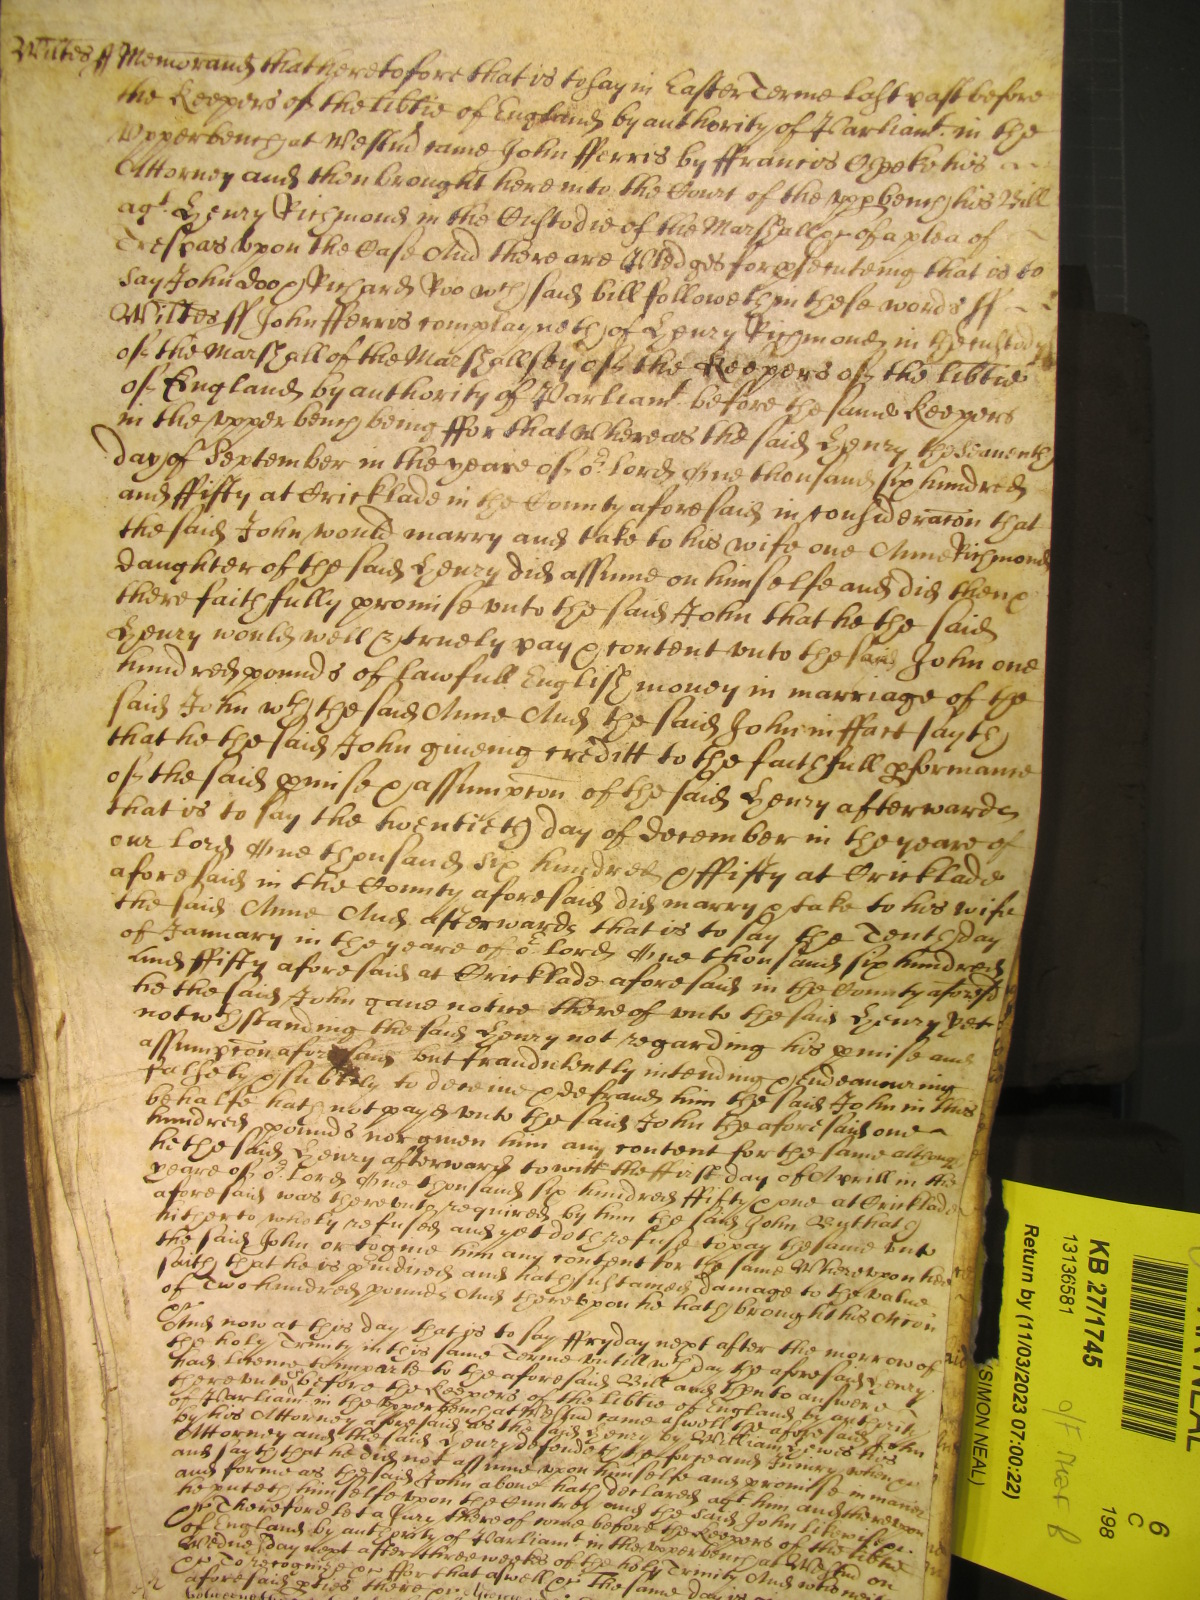 Wiltes ss Memorand that heretofore that is to say in Easter Terme last past before
the Keepers of the libtie of England by authority of Parliamt. in the
Upper bench at Westmr came John Fferris by Ffrancis his
Attorney and then brought here into the Court of the upp bench his Bill
agt. Henry Richmond in the Custodie of the Marshall &c of a plea of
Trespas upon the Case And there are Pledges for psecuteing that is to
say John Doo & Richard Roo wch said bill followeth in these words ss
Wiltes ss John Fferris complayneth of Henry Richmond in the custody
of the Marshall of the Marshallsey of the Keepers of the libtie
of England by authority of Parliamt. before the same Keepers
in the upper bench being Ffor that Whereas the said Henry the seaventh
day of September in the yeare of or. Lord One thousand six hundred
and Ffifty at Cricklade in the County aforesaid in consideracon that
the said John would marry and take to his wife one Anne Richmond
daughter of the said Henry did assume on himselfe and did then &
there faithfully promise unto the said John that he the said
Henry would well & truely pay & content unto the said John one
hundred pounds of lawfull English money in marriage of the
said John wth the said Anne And the said John in ffact sayth
that he the said John giveing creditt to the faithfull pformance
of the said pmise & assumpcon of the said Henry afterwards
that is to say the twentieth day of December in the yeare of
our Lord One thousand six hundred & ffifty at Cricklade
aforesaid in the County aforesaid did marry & take to his wife
the said Anne And afterwards that is to say the Tenth day
of January in the yeare of or. Lord One thousand six hundred
and ffifty aforesaid at Cricklade aforesaid in the County aforesd
he the said John gave notice thereof unto the said Henry Yet
notwthstanding the said Henry not regarding his pmise and
assumpcon aforesaid but fraudulently intending & Endeavouring
falsely & subtilly to deceive & defraud him the said John in this
behalfe hath not payd unto the said John the aforesaid one
hundred pounds nor given him any content for the same although
he the said Henry afterwards to witt the ffirst day of Aprill in the
yeare of or. Lord One thousand six hundred ffifty & one at Cricklade
aforesaid was thereunto required by him the said John But that
hitherto wholy refused and yet doth refuse to pay the same unto
the said John or to give him any content for the same Whereupon hee
saith that he is piudiced and hath sustained damage to the value
of Two hundred pounds And thereupon he hath brought his Accon
&c And now at this day that is to say Ffryday next after the morrow of
the holy Trinity in this same Terme untill wch day the aforesaid Henry
had licence to imparle to the aforesaid Bill and then to answere
thereunto before the Keepers of the libtie of England by authority
of Parliamt in the upper bench at Westmr came aswell the aforesaid John
by his Attorney aforesaid as the said Henry by William Lewes his
Attorney and the said Henry defendeth the force and Iniury when &c
and sayth that he did not assume upon himselfe and promise in manner
and forme as the said John above hath declared agt him and thereupon
he putteth himselfe upon the Cuntrey and the said John likewise
&c Therefore let a Jury thereof come before the Keepers of the libtie
of England by authority of Parliamt in the upper bench at Westmr on
Wednesday next after three weekes of the holy Trinity And who neither
&c To recognize &c Ffor that aswell &c The same day is
aforesaid pties there &c
KB 27/1745
13136581
Return by (11/03/2023 07:00:22)
(SIMON NEAL)
6
C
198